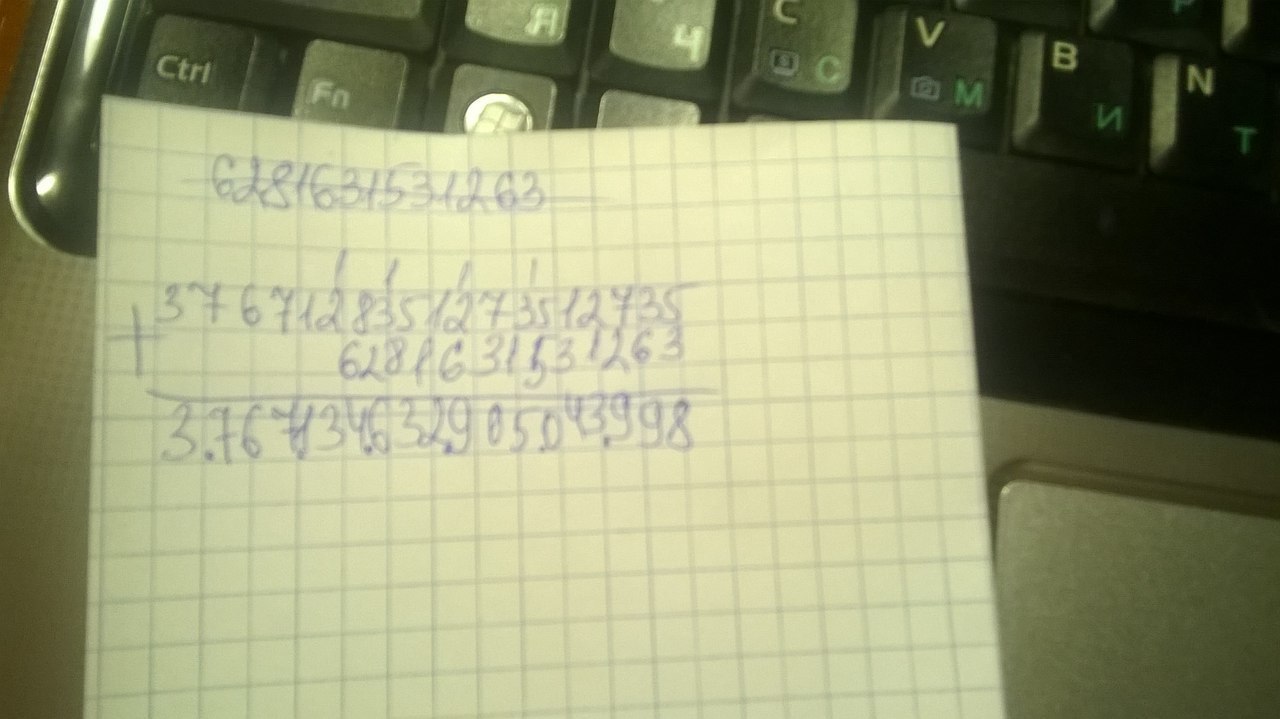 Я Ч C С V М B И N Т
Ctrl Fn
6281631531263
1 1 1 1
3767128351273512735
+
6281631531263
3.767.134.632.905.043.998